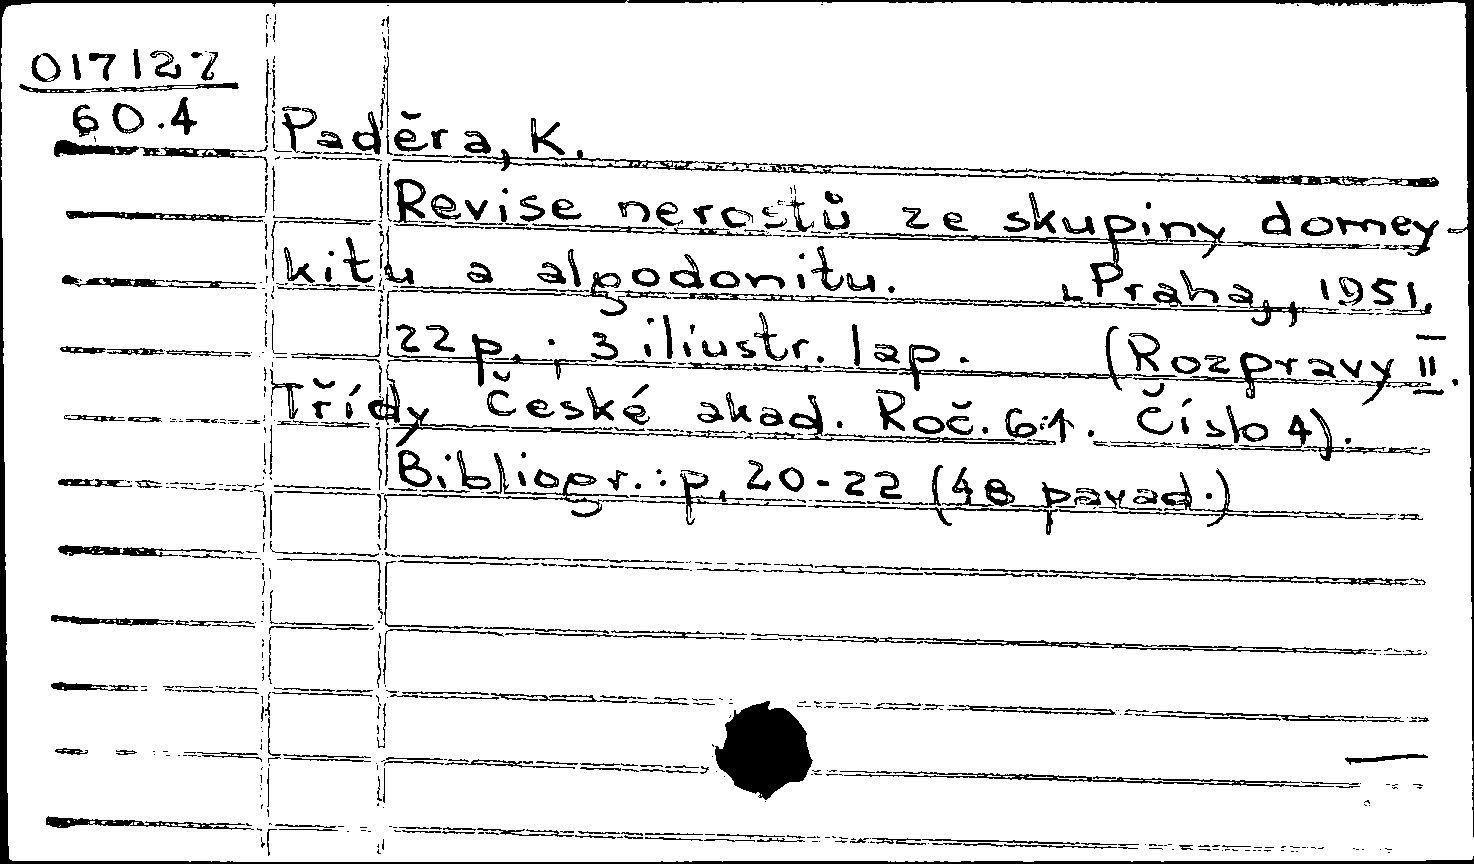 017127
60.4
Paděra, K.
Revise nerostů ze skupiny domey-
kitu a algodonitu. Praha, 1951.
22 p. ; 3 iliustr. lap. (Rozpravy II.
Třídy České akad. Roč. 61. Číslo 4).
Bibliogr.: p. 20-22 (48 pavad.)